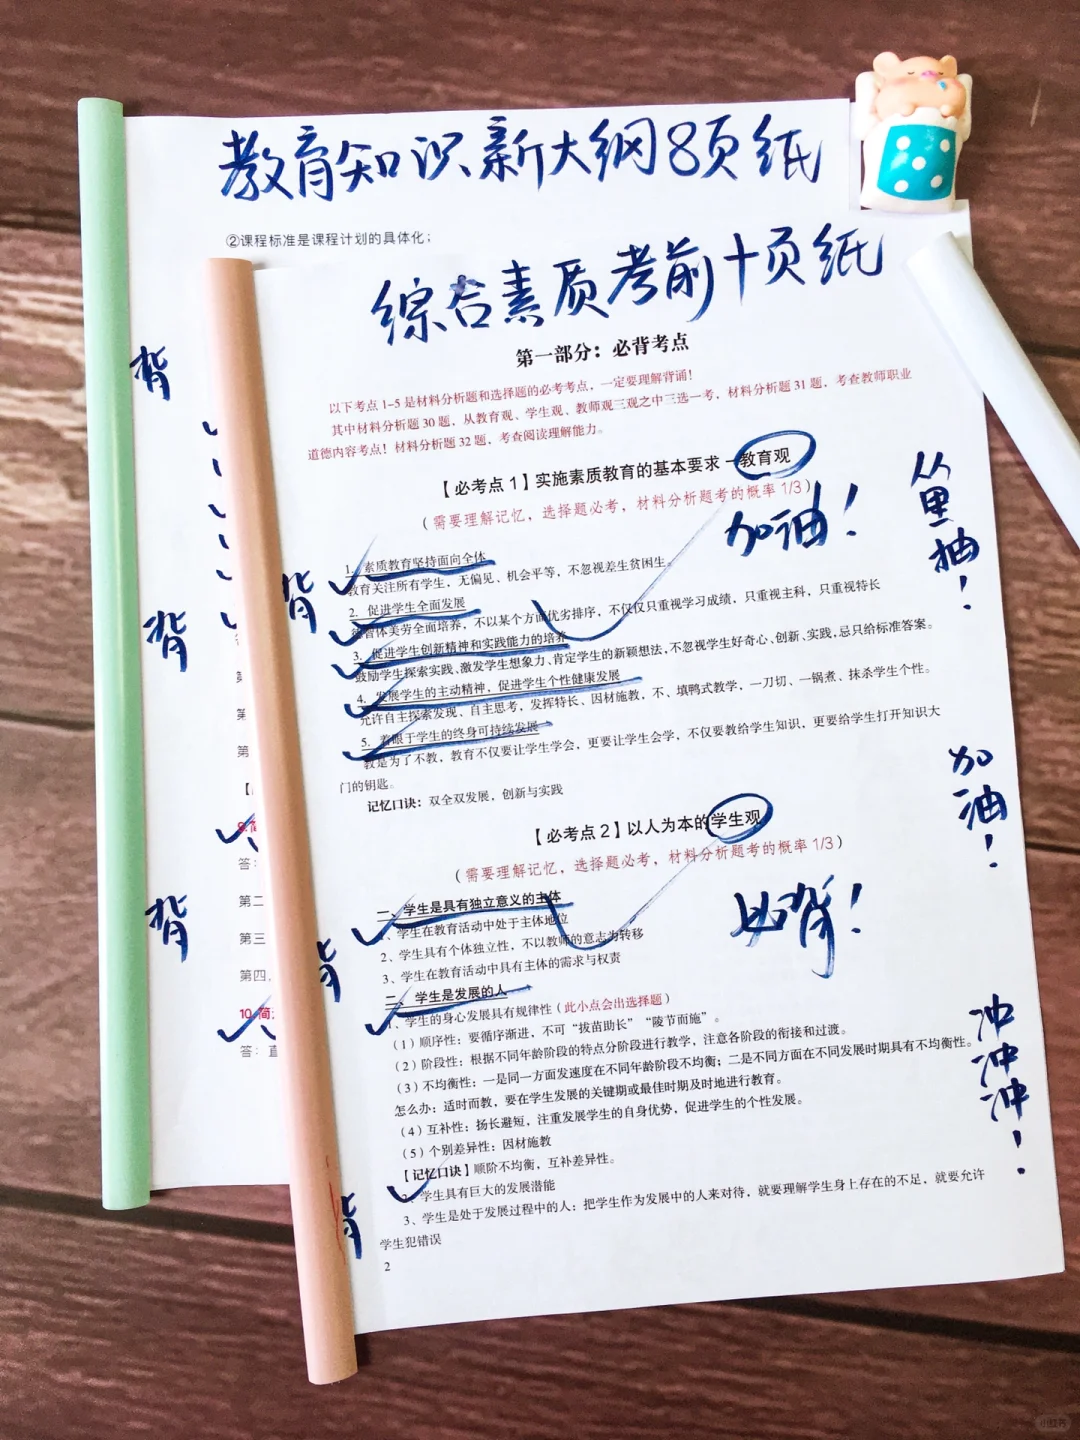 教育知识新大纲8页纸
②课程标准是课程计划的具体化；
综合素质考前十页纸
第一部分：必背考点
以下考点1-5是材料分析题和选择题的必考考点，一定要理解背诵！
其中材料分析题30题，从教育观、学生观、教师观三观之中三选一考，材料分析题31题，考查教师职业
道德内容考点！材料分析题32题，考查阅读理解能力。
【必考点1】实施素质教育的基本要求—教育观
（需要理解记忆，选择题必考，材料分析题考的概率1/3）
加油！
1. 素质教育坚持面向全体
教育关注所有学生，无偏见、机会平等，不忽视差生贫困生。
2. 促进学生全面发展
德智体美劳全面培养，不以某个方面优劣排序，不仅仅只重视学习成绩，只重视主科，只重视特长
3. 促进学生创新精神和实践能力的培养
鼓励学生探索实践、激发学生想象力、肯定学生的新颖想法，不忽视学生好奇心、创新、实践，忌只给标准答案。
4. 发展学生的主动精神，促进学生个性健康发展
允许自主探索发现、自主思考，发挥特长、因材施教，不、填鸭式教学，一刀切、一锅煮、抹杀学生个性。
5. 着眼于学生的终身可持续发展
教是为了不教，教育不仅要让学生学会，更要让学生会学，不仅要教给学生知识，更要给学生打开知识大
门的钥匙。
记忆口诀：双全双发展，创新与实践
【必考点2】以人为本的学生观
（需要理解记忆，选择题必考，材料分析题考的概率1/3）
必背！
一、学生是具有独立意义的主体
1、学生在教育活动中处于主体地位
2、学生具有个体独立性，不以教师的意志为转移
3、学生在教育活动中具有主体的需求与权责
二、学生是发展的人
1、学生的身心发展具有规律性（此小点会出选择题）
（1）顺序性：要循序渐进，不可“拔苗助长”“陵节而施”。
（2）阶段性：根据不同年龄阶段的特点分阶段进行教学，注意各阶段的衔接和过渡。
（3）不均衡性：一是同一方面发速度在不同年龄阶段不均衡；二是不同方面在不同发展时期具有不均衡性。
怎么办：适时而教，要在学生发展的关键期或最佳时期及时地进行教育。
（4）互补性：扬长避短，注重发展学生的自身优势，促进学生的个性发展。
（5）个别差异性：因材施教
【记忆口诀】顺阶不均衡，互补差异性。
2、学生具有巨大的发展潜能
3、学生是处于发展过程中的人：把学生作为发展中的人来对待，就要理解学生身上存在的不足，就要允许
学生犯错误
2
背
背
背
背
背
背
第
第
答：
第二
第三
第四
10.简
答：直
加
油！
冲
冲
冲！
小红书